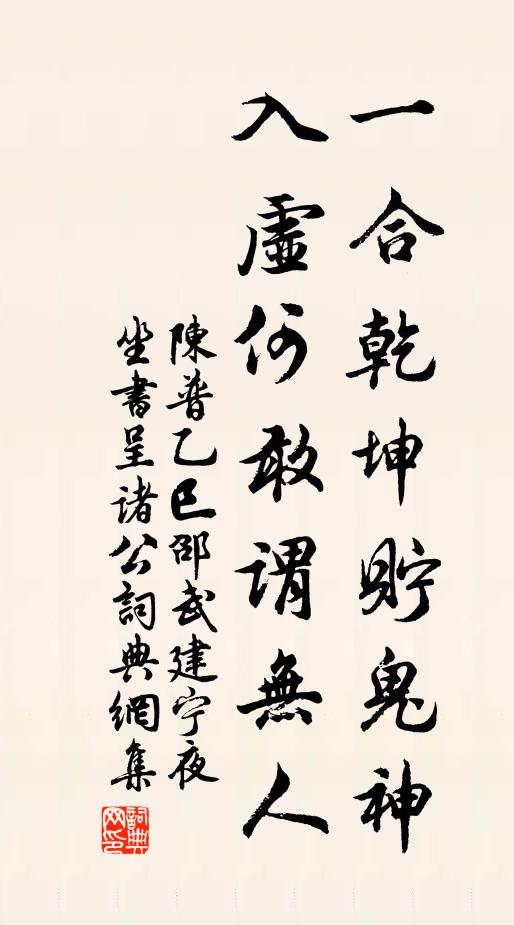 一合乾坤貯鬼神
入虛何敢謂無人
陳普乙巳邵武建宁夜
坐書呈諸公詞典網集
詞典
网印